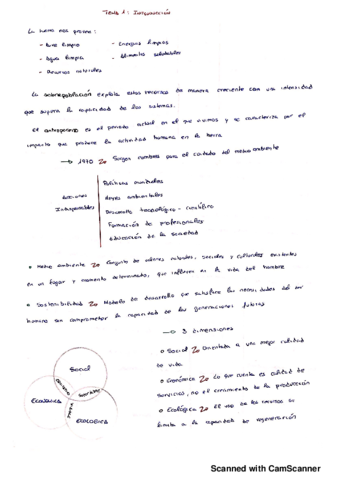 TEMA 1: INTRODUCCIÓN
La tierra nos provee:
- Aire limpio
- Energías limpias
- Agua limpia
- Alimentos saludables
- Recursos naturales
La sobrepoblación explota estos recursos de manera creciente con una intensidad
que supera la capacidad de los sistemas.
El antropoceno es el periodo actual en el que vivimos y se caracteriza por el
impacto que produce la actividad humana en la tierra
→ 1970 Surgen cumbres para el cuidado del medio ambiente
Acciones
Indispensables
Políticas ambientales
Leyes ambientales
Desarrollo tecnológico - científico
Formación de profesionales
Educación de la sociedad
Medio ambiente Conjunto de valores naturales, sociales y culturales existentes
en un lugar y momento determinados, que influyen en la vida del hombre
Sostenibilidad Modelo de desarrollo que satisface las necesidades del ser
humano sin comprometer la capacidad de las generaciones futuras
→ 3 dimensiones
Social Orientada a una mejor calidad
de vida
Económica Lo que cuenta es calidad de
servicios, no el crecimiento de la producción
Ecológica El uso de los recursos se
limita a la capacidad de regeneración
Social
Económica
Ecológica
Scanned with CamScanner